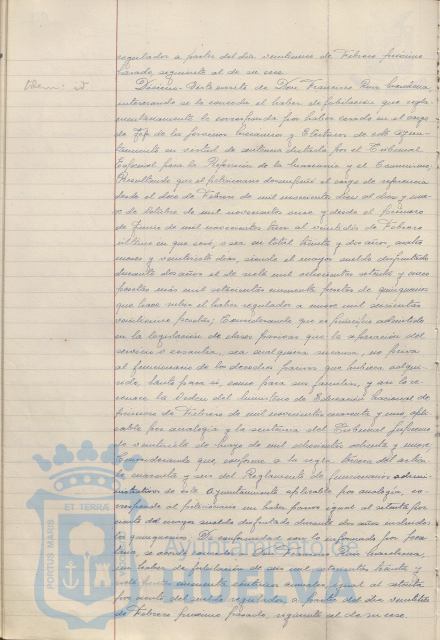 regulador a partir del día veintinueve de Febrero próximo
pasado, siguiente al de su cese.
Idem: id
Décimo. Dada cuenta de Don Francisco
interesando se le conceda el haber de jubilación que regla-
mentariamente le corresponda por haber cesado en el cargo
de Jefe de los Servicios Mecánicos y Eléctricos de este Ayun-
tamiento en virtud de sentencia dictada por el Tribunal
Especial para la Represión de la Masonería y el Comunismo;
Resultando que el peticionario desempeñó el cargo de referencia
desde el doce de Febrero de mil novecientos diez al diez y
de Octubre de mil novecientos once y desde el primero
de Junio de mil novecientos trece al veintiocho de Febrero
último en que cesó, o sea en total treinta y dos años,
meses y veintisiete días, siendo el mayor sueldo disfrutado
durante dos años el de siete mil ochocientos setenta y cinco
pesetas más mil setecientas cincuenta pesetas de quinquenios
que hace subir el haber regulador a nueve mil seiscientas
veinticinco pesetas; Considerando que es principio admitido
en la legislación de clases pasivas que la separación del
servicio o cesantía, sea cual quiera su causa, no priva
al funcionario de los derechos pasivos que hubiera adqui-
rido, tanto para sí, como para sus familiares, y así lo re-
conoce la Orden del Ministerio de Educación Nacional de
primero de Febrero de mil novecientos cuarenta y uno apli-
cable por analogía y la sentencia del Tribunal Supremo
de veintiséis de Mayo de mil ochocientos ochenta y nueve;
Considerando que, conforme a la regla tercera del artícu-
lo cuarenta y seis del Reglamento de funcionarios admi-
nistrativos de este Ayuntamiento aplicable por analogía, co-
rresponde al peticionario un haber pasivo igual al setenta por
ciento del mayor sueldo disfrutado durante dos años incluidos
los quinquenios. De conformidad con lo informado por
se acordó conceder a Don Francisco
un haber de jubilación de seis mil setecientas treinta y
siete pesetas cincuenta céntimos anuales, igual al setenta
por ciento del sueldo regulador, a partir del día veintinueve
de Febrero próximo pasado, siguiente al de su cese.
PORTUS MARIS
ET TERRAE
Ayuntamiento de
HUELVA